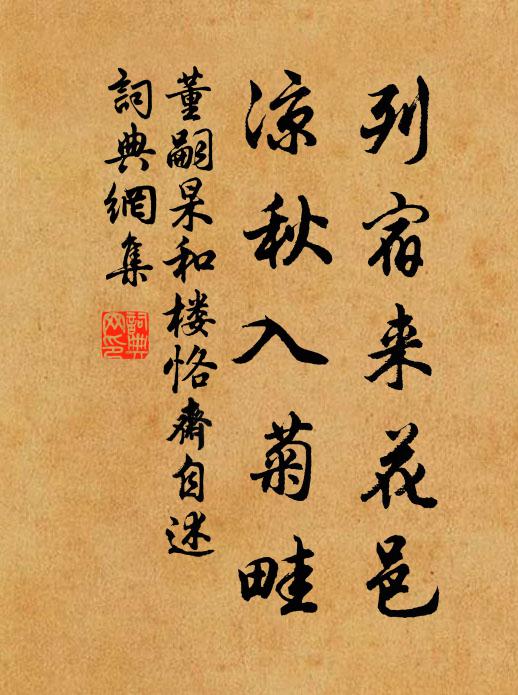 列宿来花邑
凉秋入菊畦
董嗣杲和楼恪齋自述
詞典網集
詞典网印